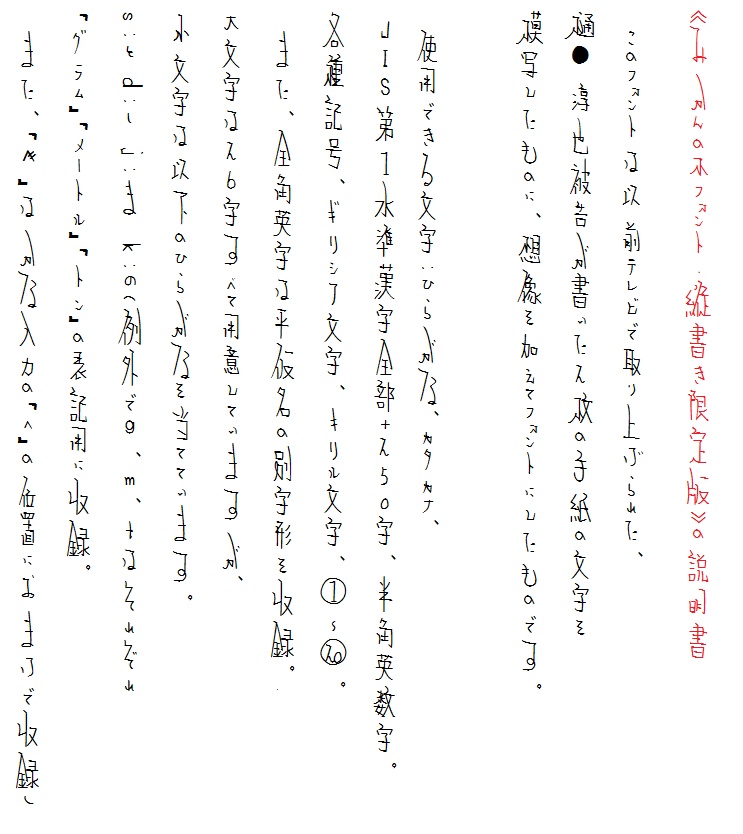 フォント:縦書き限定版》の説明書
このフォントは以前テレビで取り上げられた、
樋● 淳也被告が書いた2枚の手紙の文字を
模写したものに、想像を加えてフォントにしたものです。
使用できる文字:ひらがな、カタカナ、
JIS第1水準漢字全部+250字、半角英数字。
各種記号、ギリシア文字、キリル文字、①〜⑳。
また、全角英字は平仮名の別字形を収録。
大文字は26字すべて用意していますが、
小文字は以下のひらがなを当てています。
s:を d:し j:ま k:の(例外でg、m、tはそれぞれ
『グラム』『メートル』『トン』の表記用に収録。
また、『〆』はかな入力の『へ』の位置におまけで収録し